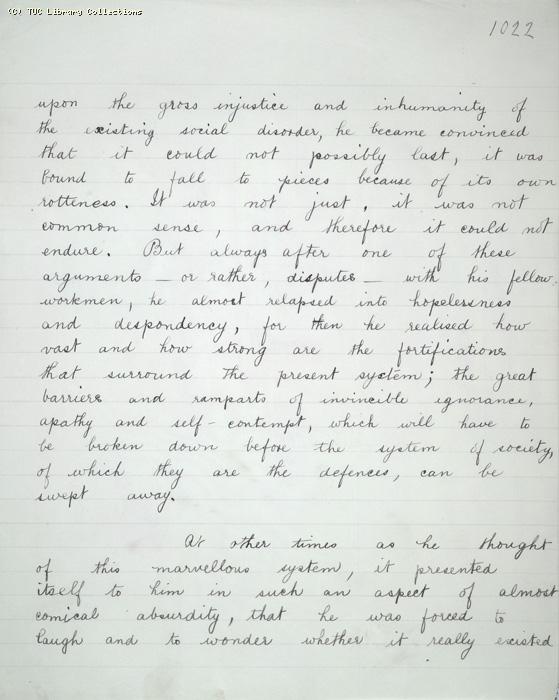 (C) TUC Library Collections
1022
upon the gross injustice and inhumanity of
the existing social disorder, he became convinced
that it could not possibly last, it was
bound to fall to pieces because of its own
rottenness. It was not just, it was not
common sense, and therefore it could not
endure. But always after one of these
arguments — or rather, disputes — with his fellow
workmen, he almost relapsed into hopelessness
and despondency, for then he realised how
vast and how strong are the fortifications
that surround the present system; the great
barriers and ramparts of invincible ignorance,
apathy and self-contempt, which will have to
be broken down before the system of society,
of which they are the defences, can be
swept away.
At other times as he thought
of this marvellous system, it presented
itself to him in such an aspect of almost
comical absurdity, that he was forced to
laugh and to wonder whether it really existed